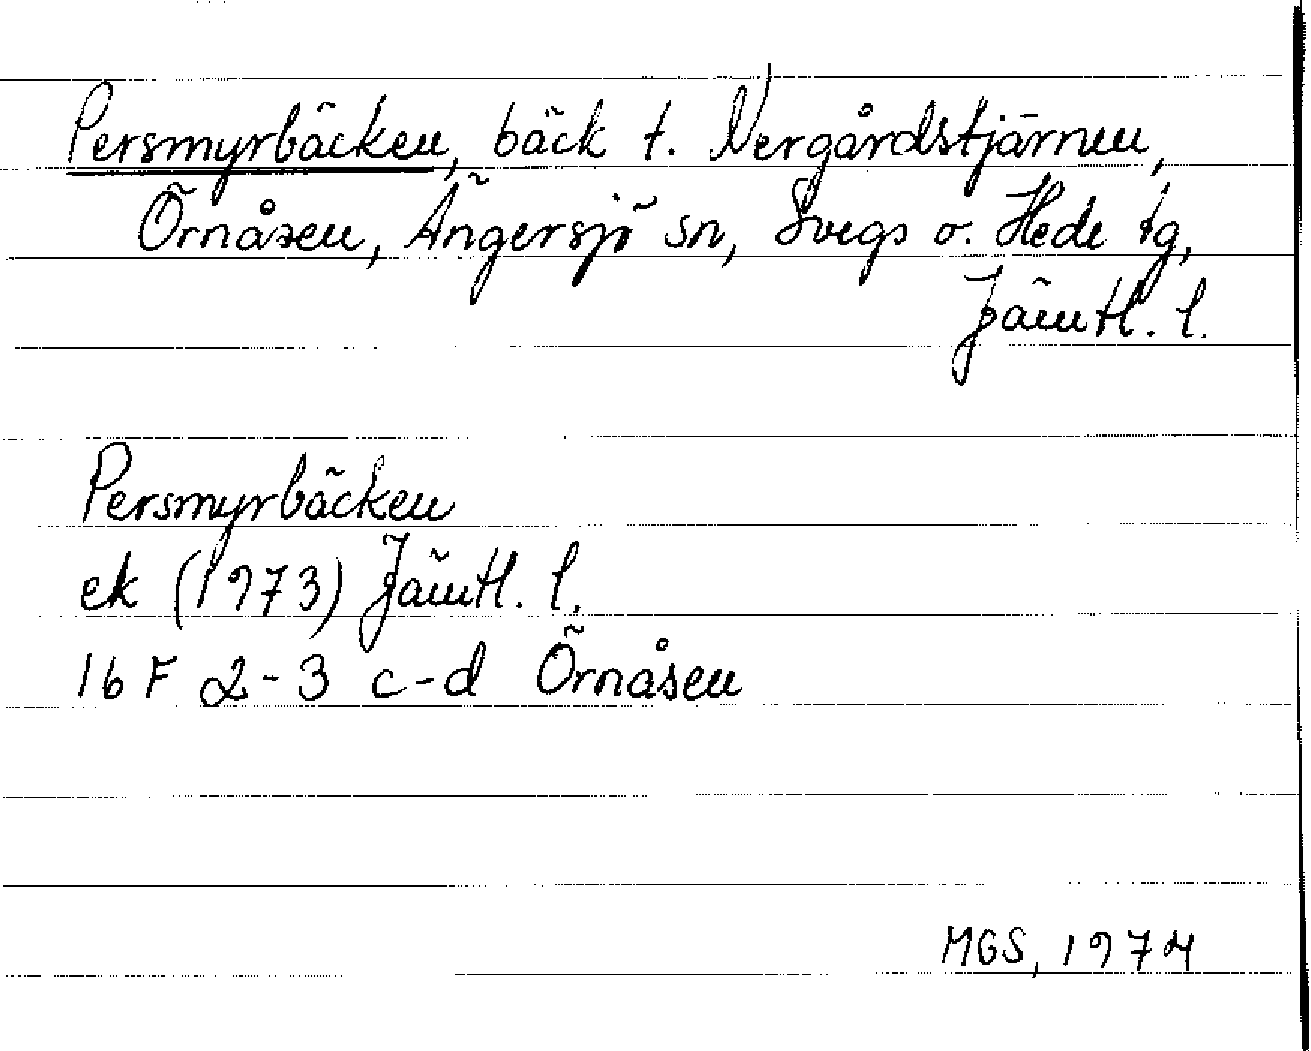 Persmyrbäcken, bäck t. Nergårdstjärnen,
Örnåsen, Ängersjö sn, Svegs o. Hede tg,
Jämtl. l.
Persmyrbäcken
ek (1973) Jämtl. l.
16 F 2-3 c-d Örnåsen
MGS, 1974